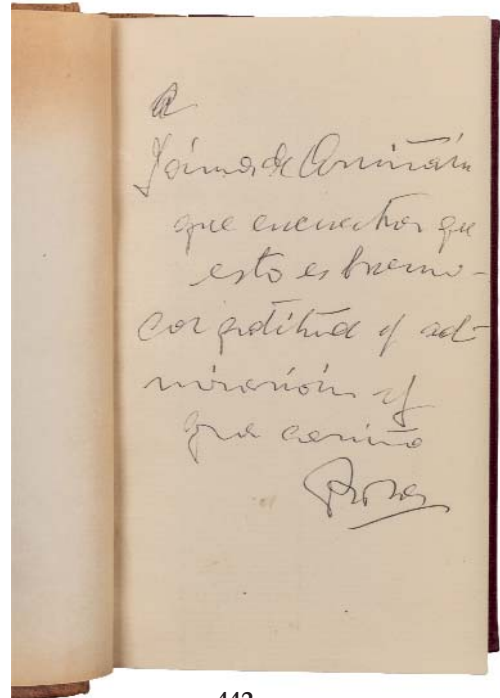 A
Jaime de Armiñán
que encuentra que
esto es bueno -
con gratitud y ad-
miración y
gran cariño
Rosa
442